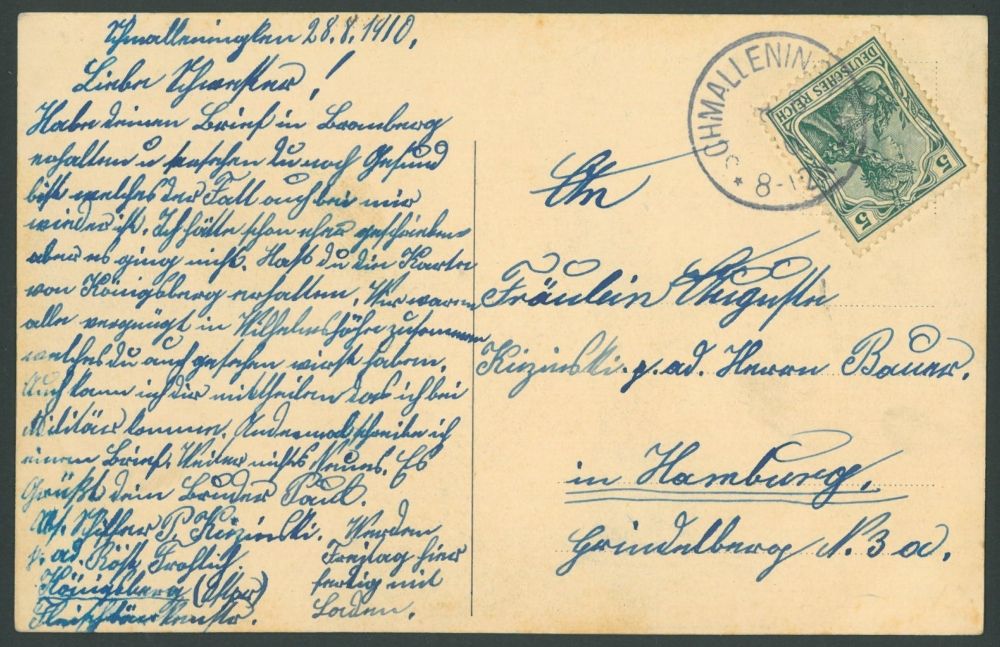 Schmalleningken 28.8.1910.
Liebe Schwester!
Habe deinen Brief in Bromberg
erhalten u ersehen du noch Gesund
bist welches der Fall auch bei mir
wieder ist. Ich hätte schon eher geschrieben
aber es ging nicht. Hast du die Karte
von Königsberg erhalten. Wir waren
alle vergnügt in Wilhelmshöhe zusammen
welches du auch gesehen wirst haben.
Auch kann ich dir mittheilen das ich bei
Militär komme. Andermal schreibe ich
einen Brief. Weiter nichts Neues. Es
Grüßt dein Bruder Paul.
Abs. Schiffer P. Kizinski.
p. ad. Röhl, Frohlich.
Königsberg
Werden
Freitag hier
fertig mit
Laden.
SCHMALLENIN
* 8-12
DEUTSCHES REICH
5
5
An
Fräulein Auguste
Kizinski. p. ad. Herrn Bauer.
in Hamburg.
Grindelberg N. 3 a.